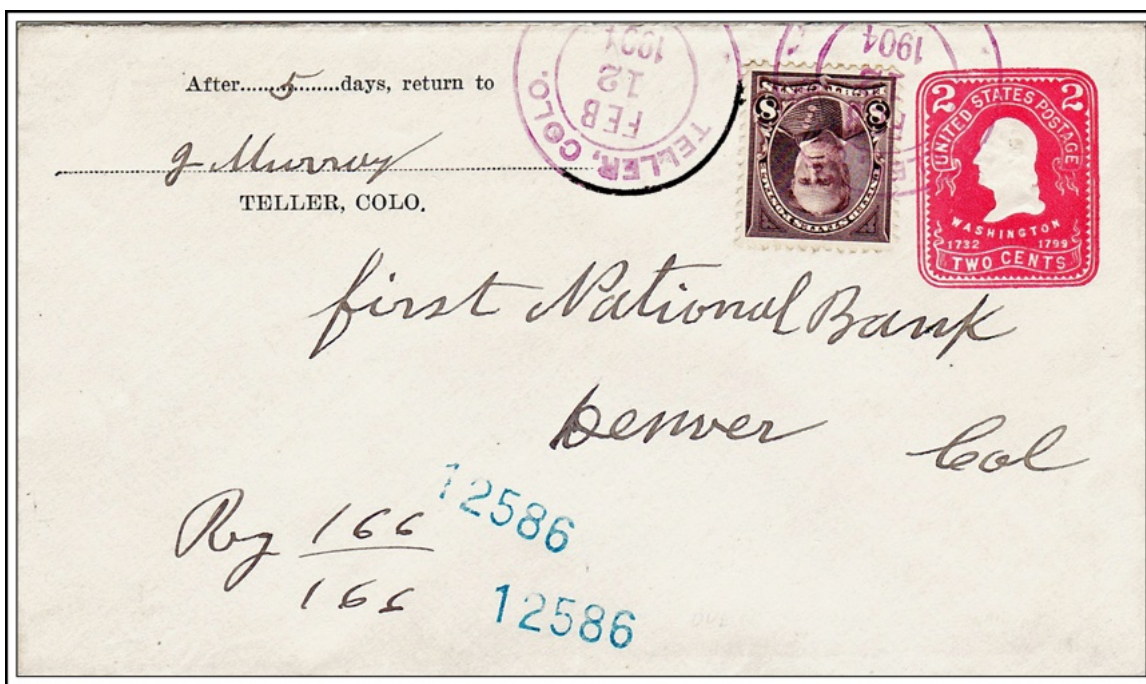 After 5 days, return to
J Murray
TELLER, COLO.
TELLER, COLO.
FEB
12
1904
12
1904
8 8
UNITED STATES POSTAGE
2 2
UNITED STATES POSTAGE
WASHINGTON
1732 1799
TWO CENTS
first National Bank
Denver Col
Reg 166
166
12586
12586